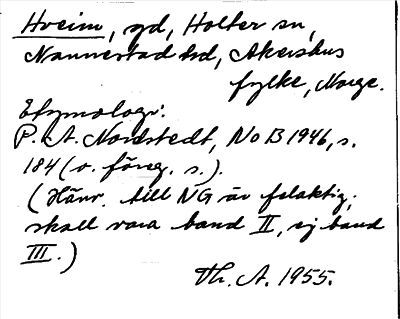 Hveim, gd, Holter sn,
Nannestad hd, Akershus
fylke, Norge.
Etymologi:
P. A. Nordstedt, NoB 1946, s.
184 (o. föreg. s.).
(Hänv. till NG är felaktig;
skall vara band II, ej band
III.)
Th. A. 1955.